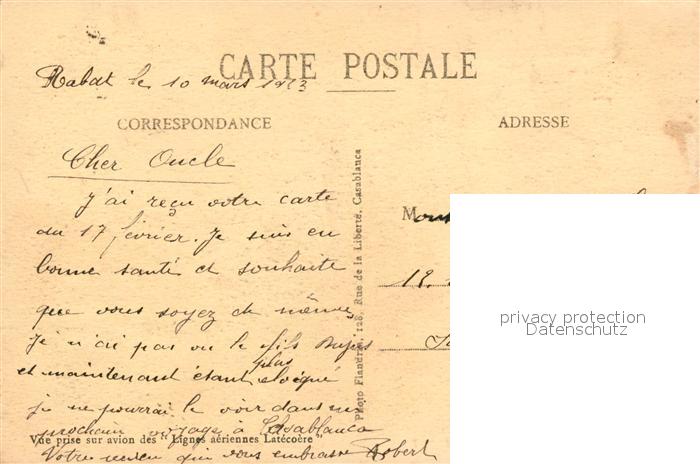 CARTE POSTALE
Rabat le 10 mars 1923
CORRESPONDANCE
ADRESSE
Cher Oncle
J'ai reçu votre carte
du 17 février. Je suis en
bonne santé et souhaite
que vous soyez de même
Je n'ai pas vu le fils
plus
et maintenant étant éloigné
je ne pourrai le voir dans un
prochain voyage à Casablanca
Vue prise sur avion des "Lignes aériennes Latécoère"
Votre neveu qui vous embrasse Robert
Photo Flandrin, 128, Rue de la Liberté, Casablanca
M
privacy protection
Datenschutz